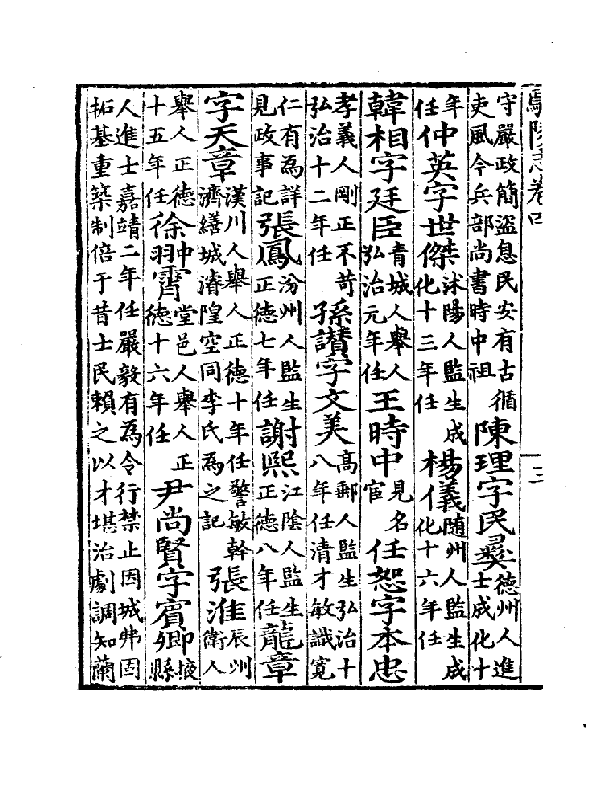 鄢陵志卷四
三
守嚴政簡盜息民安有古循吏風今兵部尚書時中祖 陳理字民彝 德州人進士成化十
年任 仲英字世傑 沭陽人監生成化十三年任 楊儀 隨州人監生成化十六年任
韓相字廷臣 青城人舉人弘治元年任 王時中 見名宦 任恕字本忠
孝義人剛正不苛弘治十二年任 孫讃字文美 高郵人監生弘治十八年任清才敏識寛
仁有為詳見政事記 張鳳 汾州人監生正德七年任 謝熙 江陰人監生正德八年任 龍章
字天章 漢川人舉人正德十年任警敏幹濟繕城濬隍空同李氏為之記 張淮 辰州衛人
舉人正德十五年任 徐翀霄 堂邑人舉人正德十六年任 尹尚賢字賓卿 掖縣
人進士嘉靖二年任嚴毅有為令行禁止因城弗固拓基重築制倍于昔士民賴之以才堪治劇調知蘭